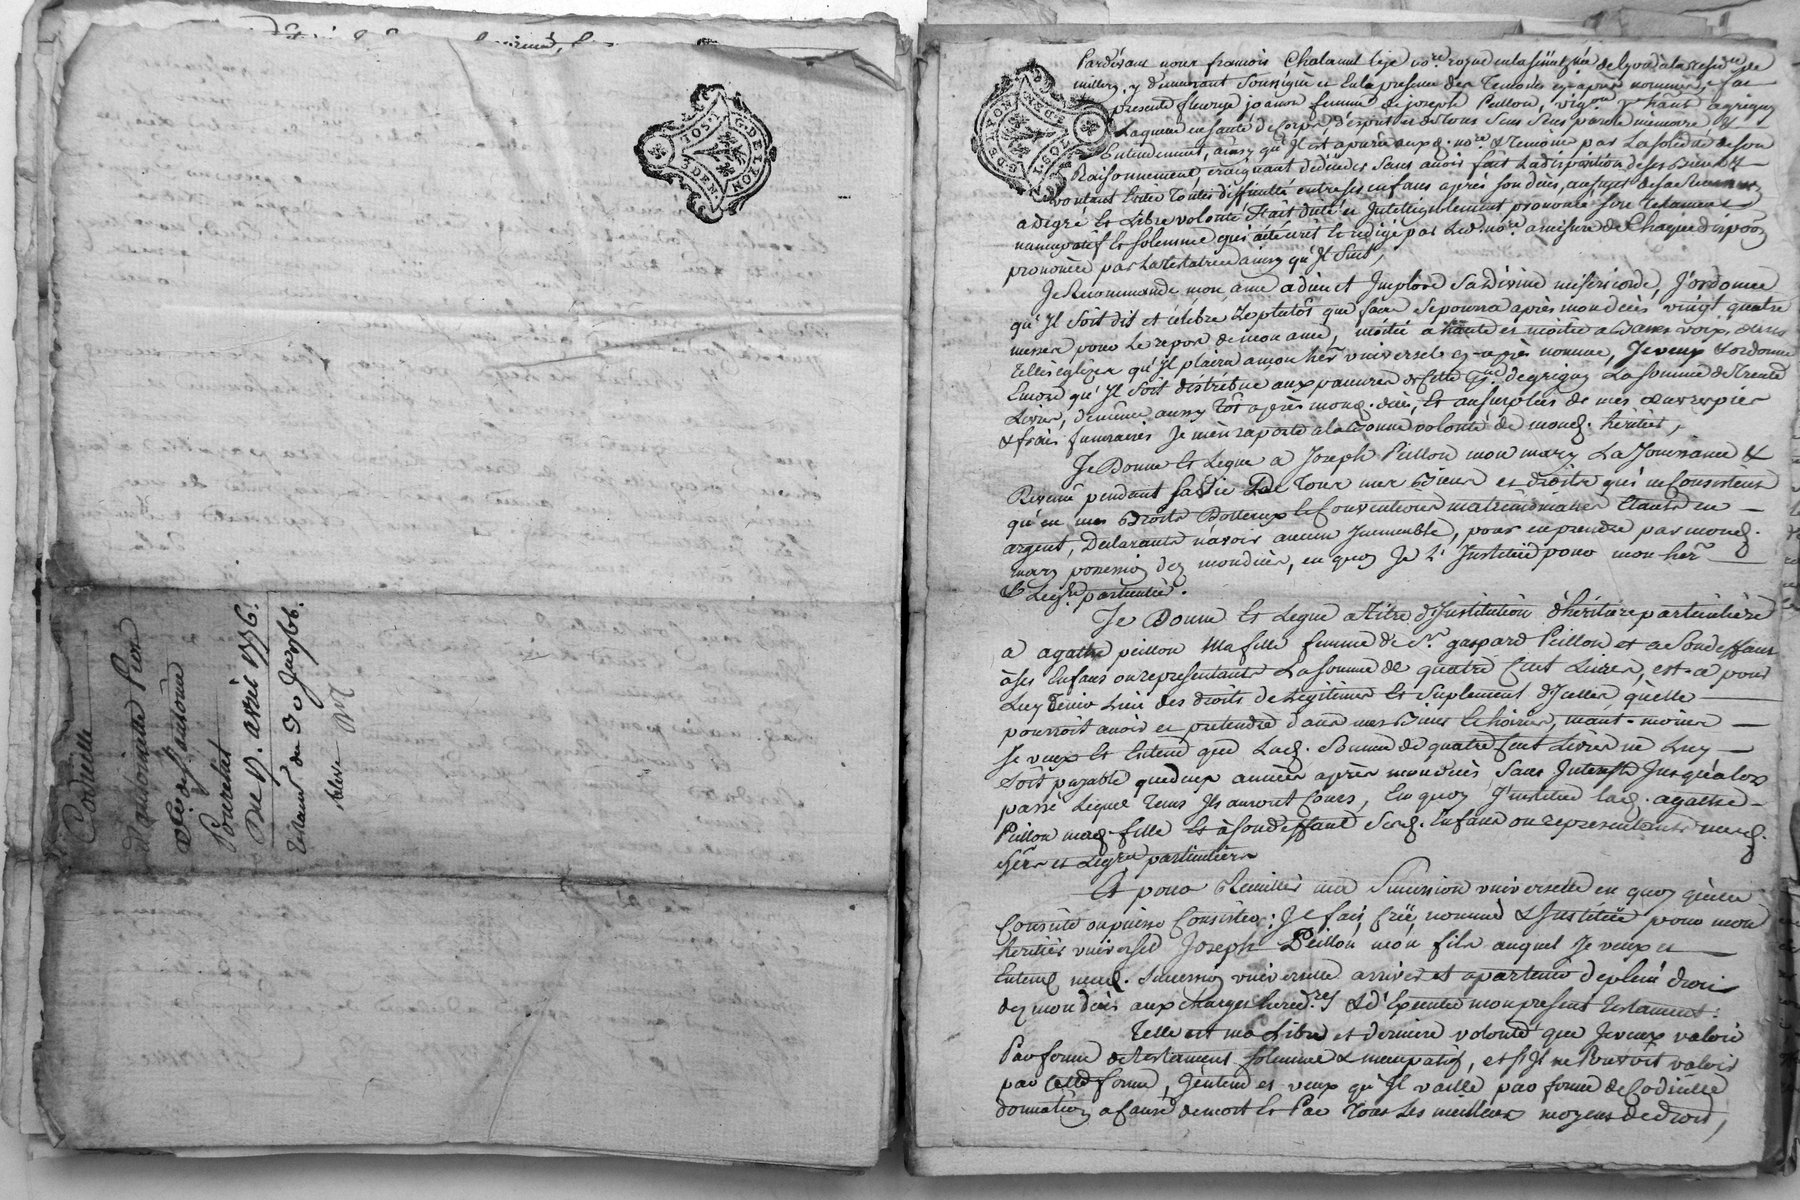 G.DE LYON
1.SOL
3.DEN.
Codicille
d'antoinette
Du 9. avril 1776.
G.DE LYON
1.SOL
Pardevant nous francois Chalamel
millery y demeurant soussigné et En la presence des Temoins cy-apres nommés, fut
presente fleurye joanon femme de joseph Peillon, vig.on h.ant a grigny
Laquelle en santé de Corps, d'esprit et de tous Sens Sens parole memoire &
Entendement, ainsy qu'il est aparu auxd. no.re & temoins par La solidité de son
Raisonnement, craignant de deceder Sans avoir fait La disposition de ses Biens &
voulant Eviter Toutes difficultés entre ses enfans après son décès, au sujet de sa
a degré et Libre volonté Fait dicté et Intelligiblement prononcé son Testament
nuncupatif et solemnel qui a été ecrit et redigé par Led. no.re a mesure de Chaque dispôôn
prononcée par La testatrice ainsy qu'Il Suit,
Je Recommande mon ame a dieu et Implore Sa divine misericorde, J'ordonne
qu'Il soit dit et célébré Le plutôt que faire Se pourra après mon décès vingt quatre
messes pour Le repos de mon ame, moitié a haute et moitié a basses voix, dans
telles églizes qu'Il plaira a mon her. universel cy-après nommé, Je veux & ordonne
Encore qu'Il Soit distribué aux pauvres de Cette de grigny La somme de Trente
Livres, de même aussy tôt après mond. décès, Et au surplus de mes oeuvres pies
& frais funeraires Je m'en raporte a la Bonne volonté de mond. héritier,
Je Donne Et Legue a Joseph Peillon mon mary La Jouissance &
Revenu pendant sa Vie De Tous mes Biens et droits qui ne Consistent
qu'en mes Droits Dotteaux et Conventions matrimoniales Etants en
argent, Declarante n'avoir aucun Immeuble, pour en prendre par mond.
mary possession dez mon décès, en quoy Je L'Institue pour mon her.
& Leg.re particulier.
Je Donne Et Legue a titre d'Institution d'héritiere particulière
a agathe peillon Ma fille femme de Sr. gaspard Peillon et a Son deffaut
à ses Enfans ou representants La somme de quatre Cent Livres, est-a pour
Luy tenir Lieu des droits de Legitimes Et Suplement d'Icelles qu'elle
pourroit avoir et pretendre dans mes Biens Et hoirie, mant-moins
Je veux Et Entend que Lad. Somme de quatre Cent Livres ne Luy
Soit payable que deux années après mon décès Sans Interests Jusqu'alors
passé Lequel tems Ils auront Cours, En quoy J'institue lad. agathe
Peillon mad. fille Et à son deffaut Sesd. Enfans ou representants mesd.
hers et Leg.res particuliers
Et pour Recueillir ma Succession universelle en quoy qu'elle
Consiste ou puisse Consister; Je fais, Crée, nomme & Institue pour mon
heritier universel Joseph Peillon mon fils auquel Je veux et
Entend mad. Succession universelle arriver et apartenir de plein droit
dez mon décès aux charges hered.res & d'Executer mon present testament:
Telle est ma Libre et derniere volonté que Je veux valoir
Par forme de testament Solemnel & nuncupatif, et s'Il ne Pouvoit valoir
par Cette forme, J'entend et veux qu'Il vaille par forme de Codicille
donnation a cause de mort Et Par Tous Les meilleurs moyens de droit,